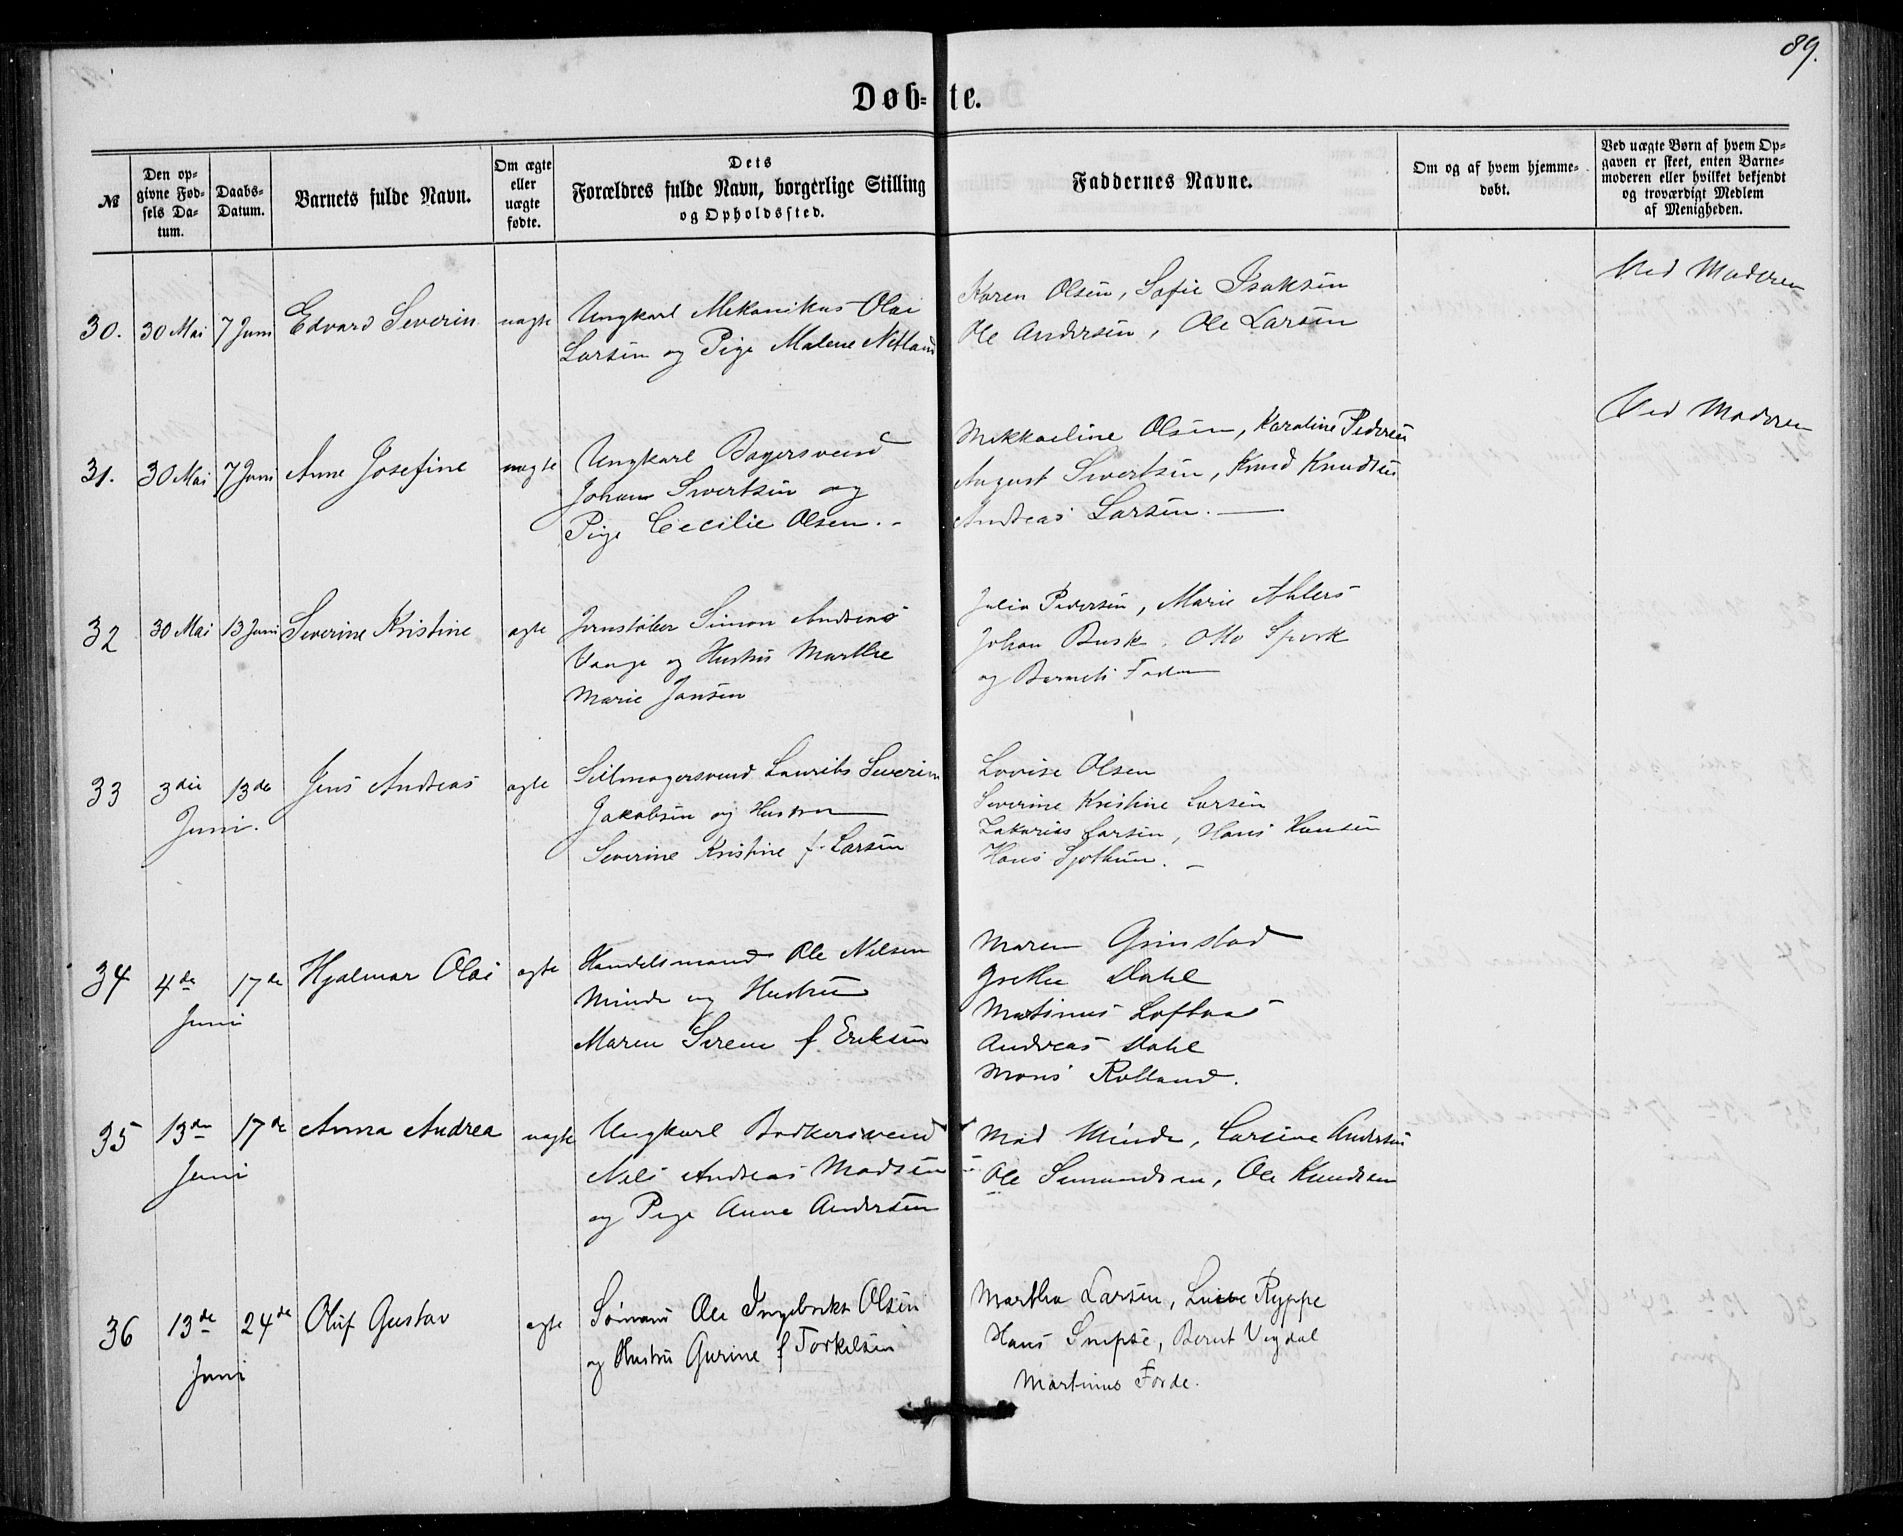 89.
Døb-te.
№
Den opgivne Fødsels Datum.
Daabs-Datum.
Barnets fulde Navn.
Om ægte eller uægte fødte.
Dets Forældres fulde Navn, borgerlige Stilling og Opholdssted.
Faddernes Navne.
Om og af hvem hjemmedøbt.
Ved uægte Børn af hvem Opgaven er skeet, enten Barnemoderen eller hvilket bekjendt og troværdigt Medlem af Menigheden.
30. 30 Mai 7 Juni Edvard Severin uægte
Ungkarl Mekanikus Olai
Larsen og Pige Malene Netland
Karen Olsen, Sofie Isaksen
Ole Andersen, Ole Larsen
Ved Moderen
31. 30 Mai 7 Juni Anne Josefine uægte
Ungkarl Bagersvend
Johan Sivertsen og
Pige Cecilie Olsen. -
Mikkaeline Olsen, Karoline Pedersen
August Sivertsen, Knud Knudsen
Andreas Larsen. —
Ved Moderen
32 30 Mai 13 Juni Severine Kristine ægte
Jernstøber Simon Andreas
Vange og Hustru Marthe
Marie Jansen
Julia Pedersen, Marie Ahlers
Johan Busk. Otto Spork
og Barnets Fader
33 3die Juni. 13de Jens Andreas ægte
Seilmagersvend Laurits Severin
Jakobsen og Hustru
Severine Kristine f. Larsen
Lovise Olsen
Severine Kristine Larsen
Zakarias Larsen, Hans Hansen
Hans Sjothun. -
34 4de Juni 17de Hjalmar Olai ægte
Handelsmand Ole Nilsen
Minde og Hustru
Maren Serene f. Eriksen
Maren Grimstad
Grethe Dahl
Martinus Loftaas
Andreas Dahl
Mons Rolland.
35 13de Juni 17de Anna Andrea uægte
Ungkarl Bødkersvend
Nils Andreas Madsen
og Pige Anne Andersen
Mad Minde, Larsine Andersen
Ole Simundsen, Ole Knudsen
36 13de Juni 24de Oluf Gustav ægte
Sømand Ole Ingebrikt Olsen
og Hustru Gurine f Torkelsen
Martha Larsen, Luise Ryppe
Hans Smpse, Berent Vigdal
Martinus Forde.